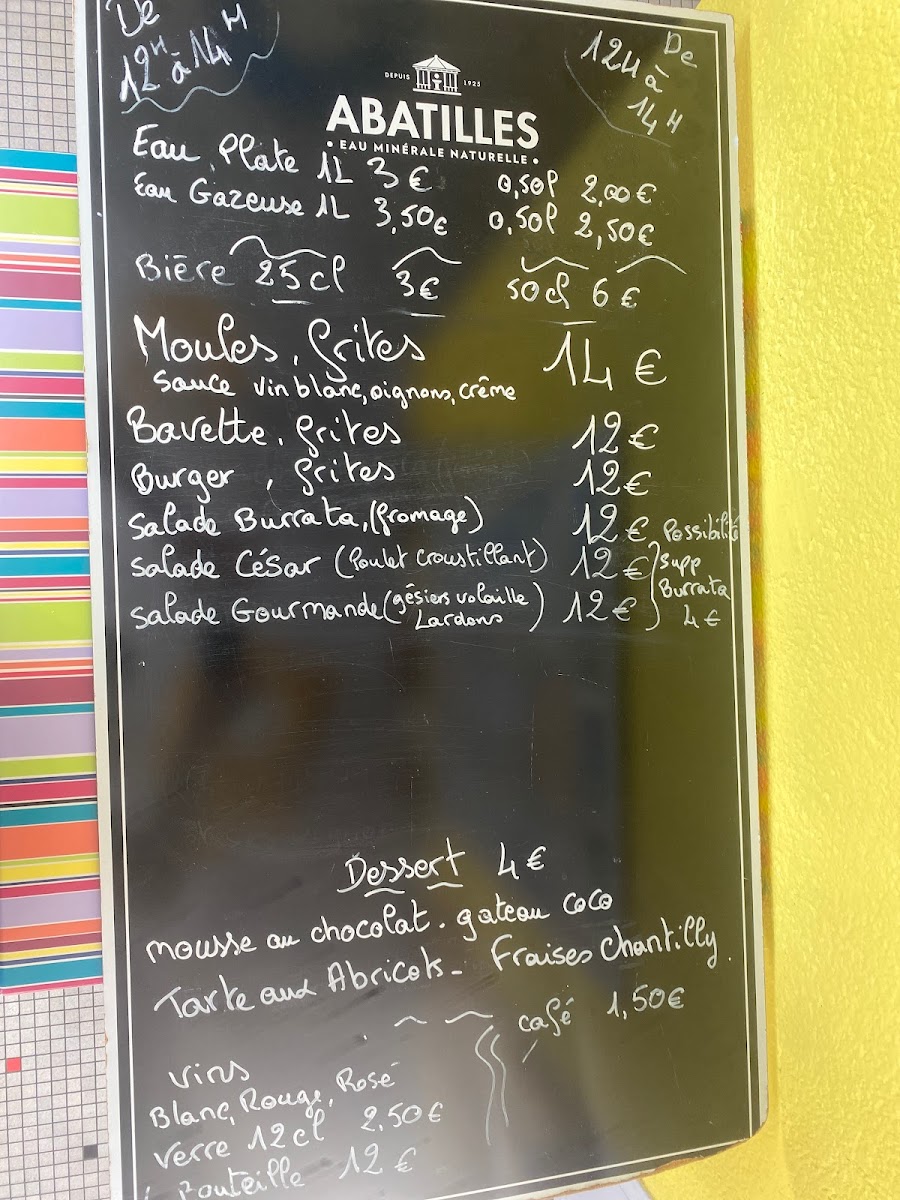 De
12H à 14H
De
12H à
14H
DEPUIS 1925
ABATILLES
• EAU MINÉRALE NATURELLE •
Eau Plate 1L 3€ 0,50l 2,00€
Eau Gazeuse 1L 3,50€ 0,50l 2,50€
Bière 25cl 3€ 50cl 6€
Moules, frites 14€
Sauce vin blanc, oignons, crême
Bavette, frites 12€
Burger, frites 12€
Salade Burrata, (fromage) 12€
Salade César (Poulet Croustillant) 12€
Salade Gourmande (gésiers volaille Lardons) 12€
Possibilité
Supp
Burrata
4€
Dessert 4€
mousse au chocolat. gateau coco
Tarte aux Abricots - Fraises Chantilly.
café 1,50€
Vins
Blanc, Rouge, Rosé
Verre 12cl 2,50€
Bouteille 12€